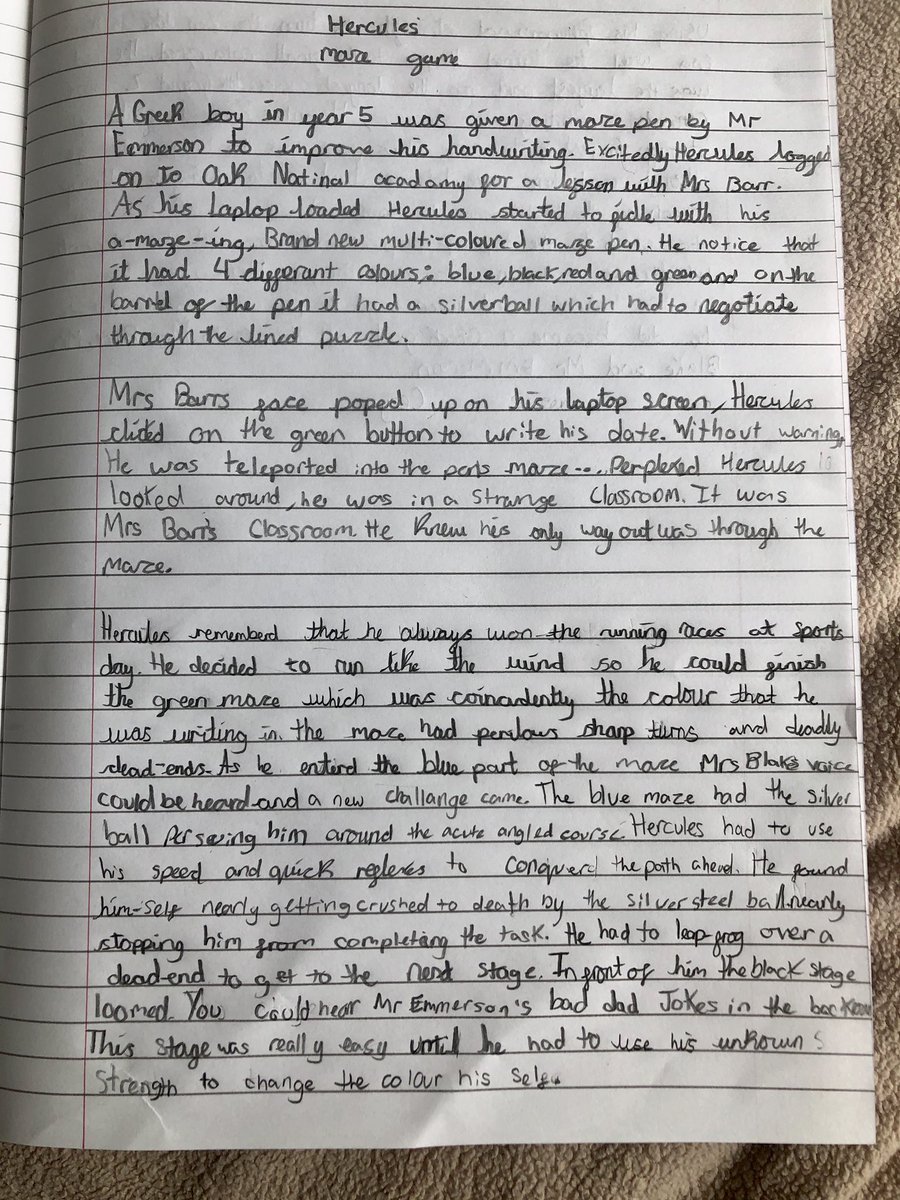 Hercules
maze game
A Greek boy in year 5 was given a maze pen by Mr
Emmerson to improve his handwriting. Excitedly Hercules logged
on to Oak Natinal academy for a lesson with Mrs Barr.
As his laptop loaded Hercules started to fidle with his
a-maze-ing, Brand new multi-coloured marze pen. He notice that
it had 4 differant colours: blue, black, red and green and on the
barrel of the pen it had a silverball which had to negotiate
through the lined puzzle.
Mrs Barrs face poped up on his laptop screen, Hercules
clicted on the green button to write his date. Without warning,
He was teleported into the pens maze.... Perplexed Hercules
looked around, he was in a strange Classroom. It was
Mrs Barr's Classroom. He knew his only way out was through the
maze.
Hercules rememberd that he always won the running races at sports
day. He decided to run like the wind so he could finish
the green maze which was coincidently the colour that he
was writing in. the maze had perilous sharp turns and deadly
dead-ends. As he enterd the blue part of the maze Mrs Blake's voice
could be heard and a new challange came. The blue maze had the silver
ball perseving him around the acute angled course. Hercules had to use
his speed and quick reflexes to conquerd the path ahead. He found
him-self nearly getting crushed to death by the silver steel ball nearly
stopping him from completing the task. He had to leap-frog over a
dead-end to get to the next stage. In front of him the black stage
loomed. You could hear Mr Emmerson's bad dad Jokes in the
This stage was really easy until he had to use his unkown
strength to change the colour his self.